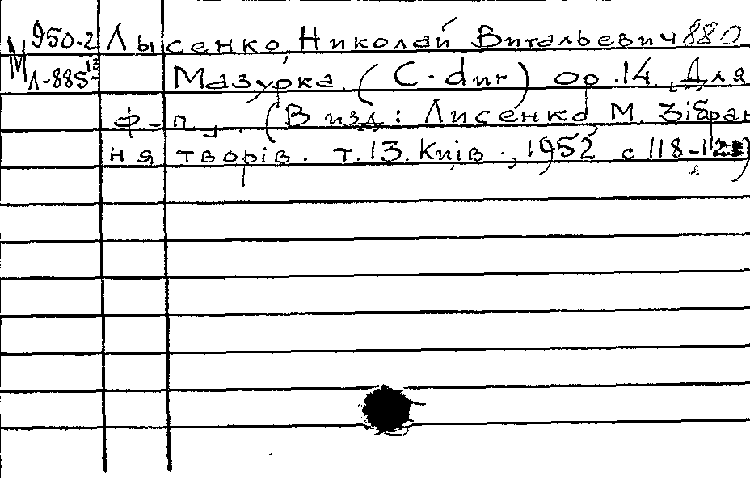 М 950-2 Лысенко, Николай Витальевич 880
Л-885 13 Мазурка. (C-dur) op.14. Для
ф-п. (В изд: Лисенко М. Зібран
ня творів. т.13. Київ., 1952 с 118-